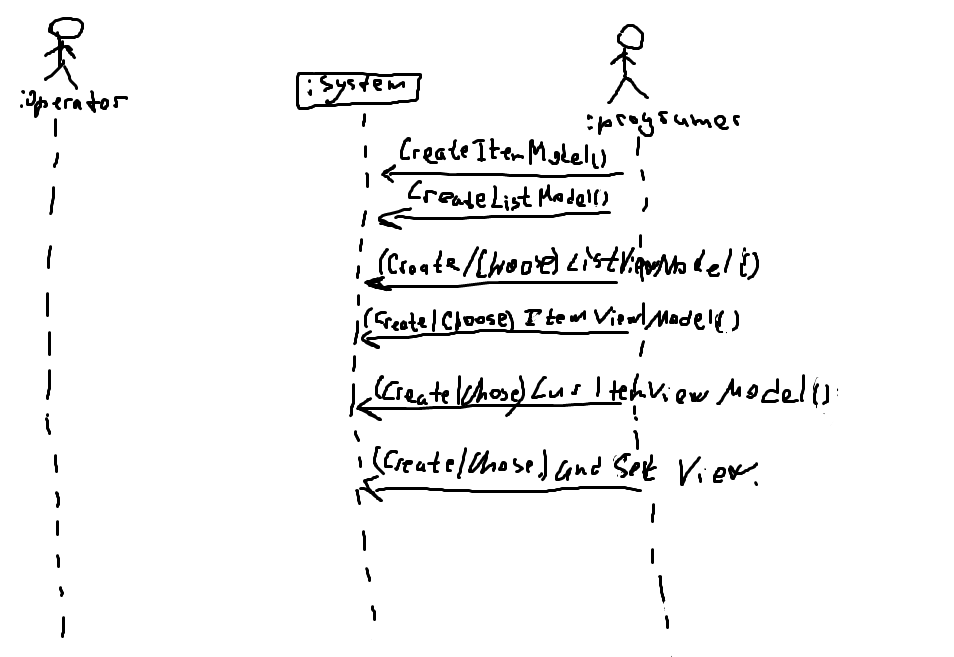 :System
:Operator
:progrumer
CreateItemModel()
CreateListModel()
(Create/Choose) ListViewModel()
(Create/Choose) ItemViewModel()
(Create/Chose) Cur ItemView Model()
(Create/Chose) and Set View.